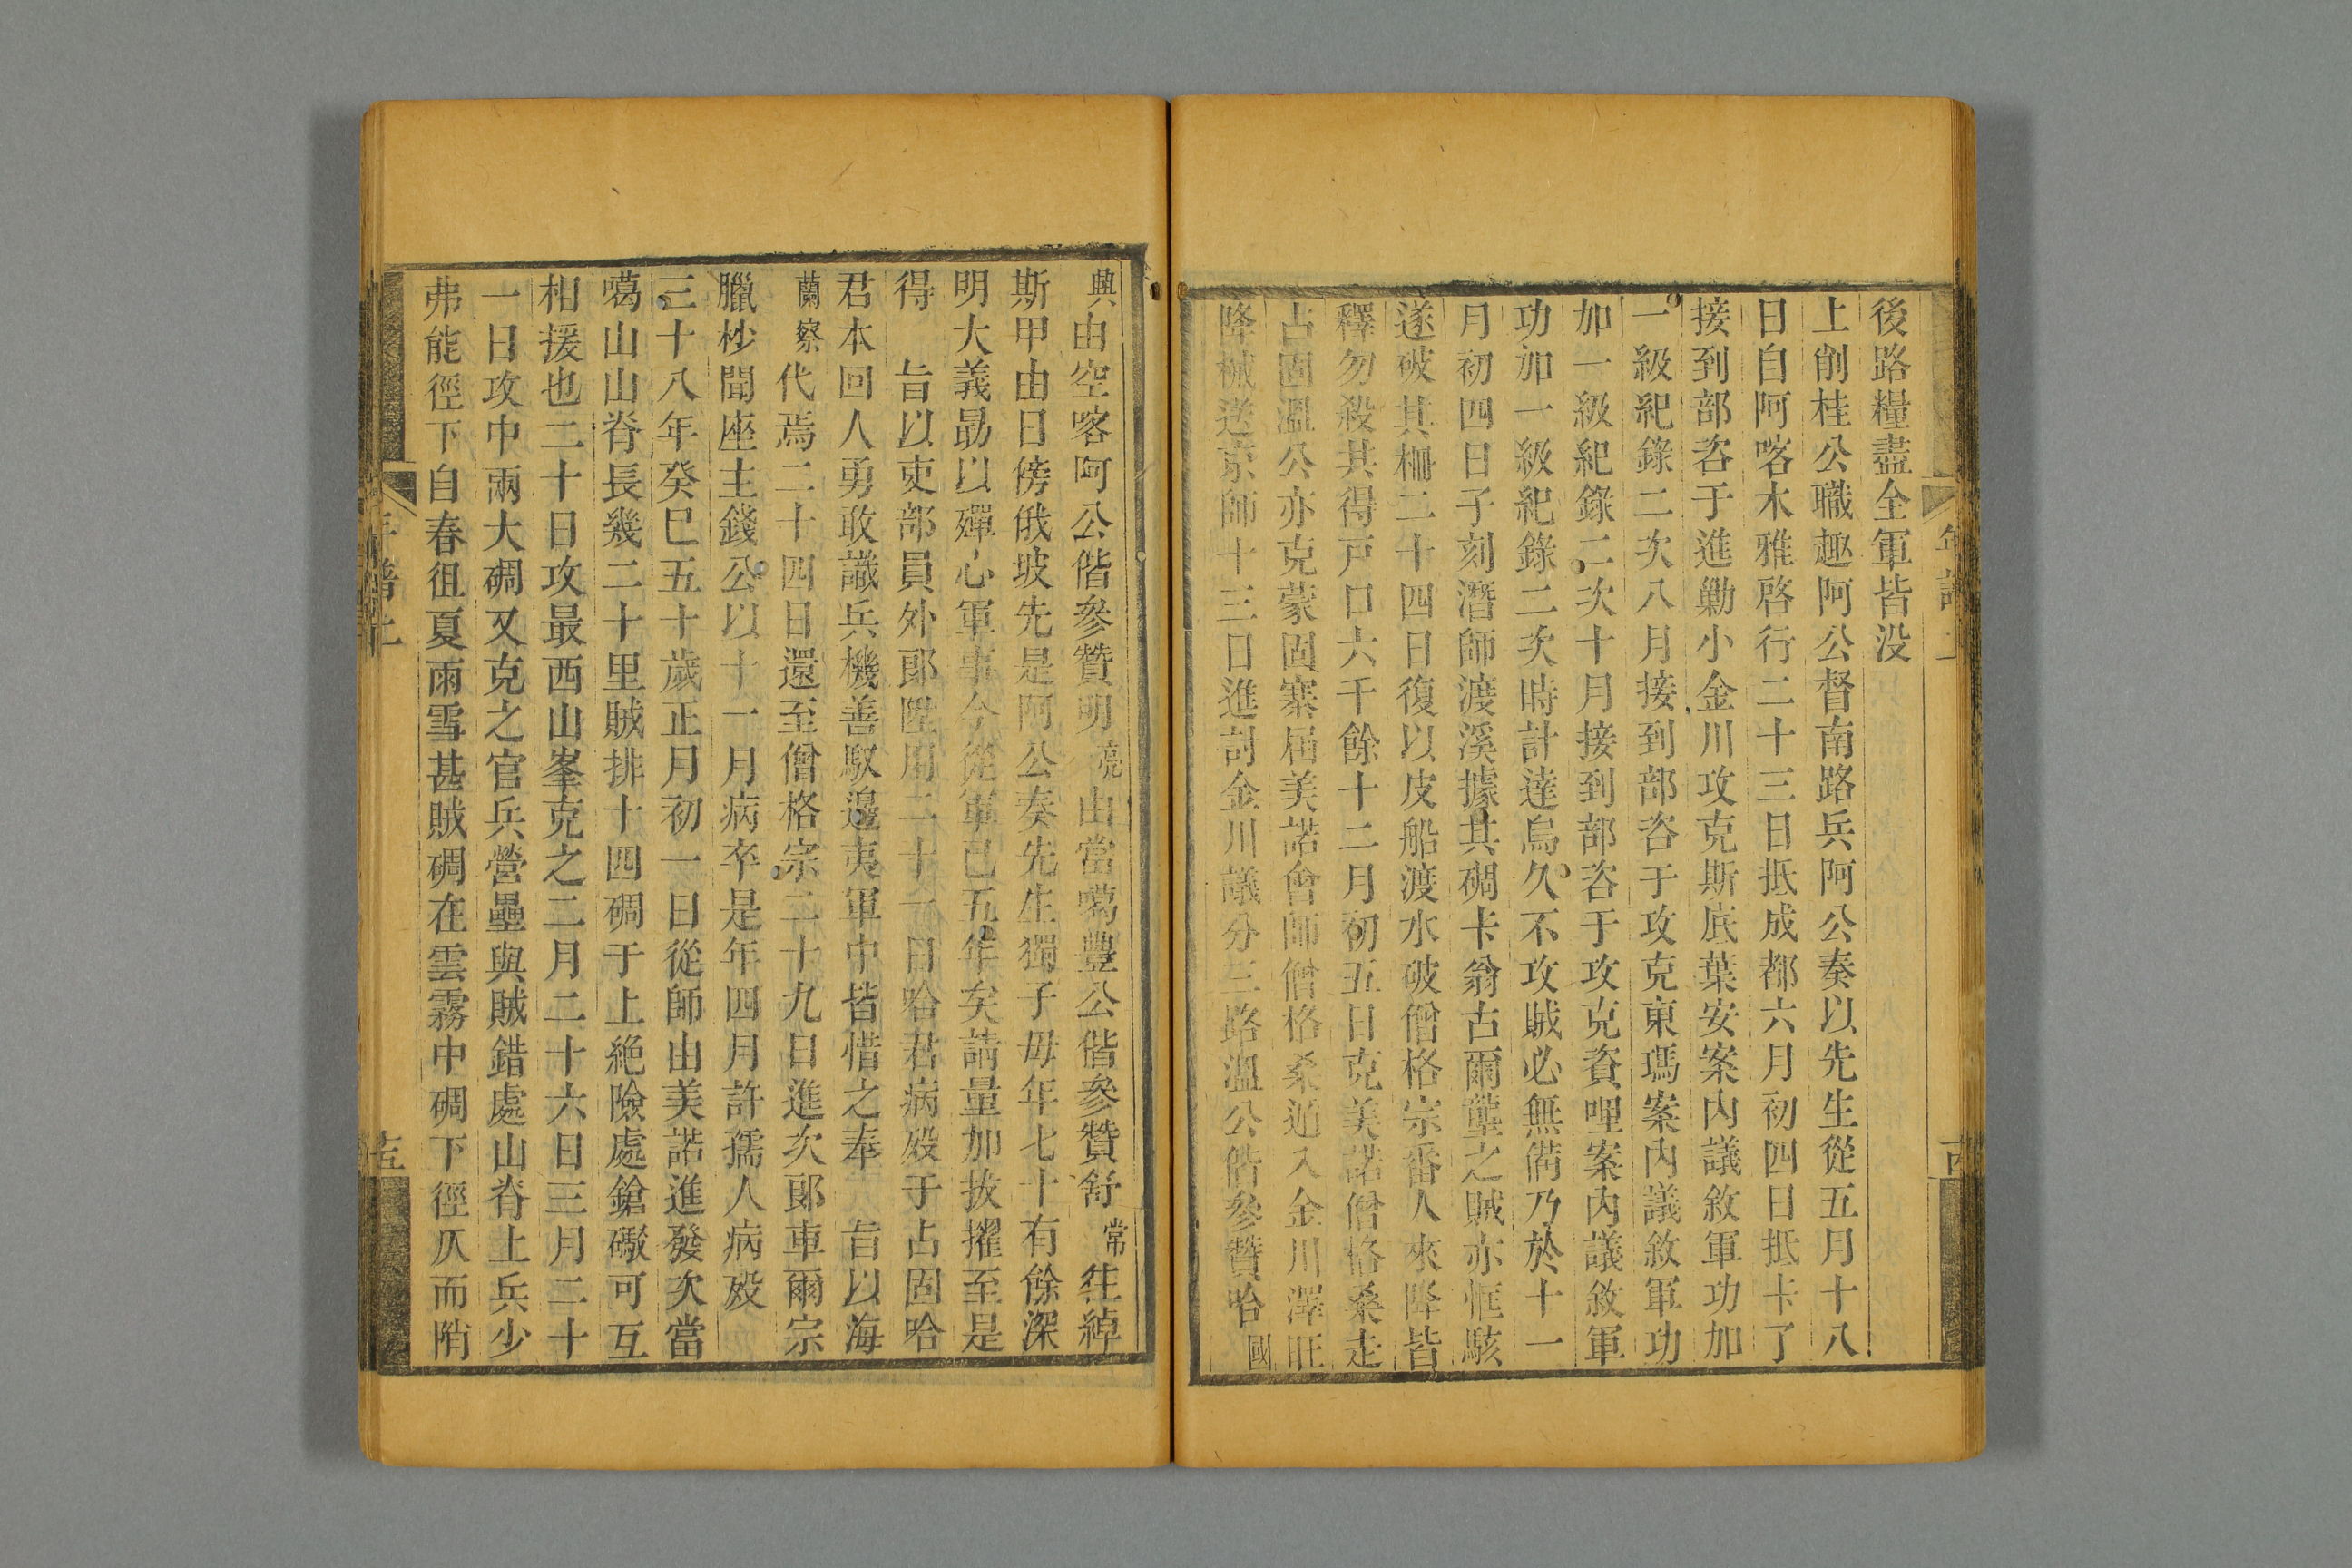 後路糧盡全軍皆没
上削桂公職趣阿公督南路兵阿公奏以先生從五月十八
日自阿喀木雅啓行二十三日抵成都六月初四日抵卡了
接到部咨于進勦小金川攻克斯底葉安案內議敘軍功加
一級紀錄二次八月接到部咨于攻克東瑪案內議敘軍功
加一級紀錄二次十月接到部咨于攻克資哩案內議敘軍
功加一級紀錄二次時計達烏久不攻賊必無備乃於十一
月初四日子刻潛師渡溪據其碉卡翁古爾壟之賊亦恇駭
遂破其柵二十四日復以皮船渡水破僧格宗番人來降皆
釋勿殺其得戸口六千餘十二月初五日克美諾僧格桑走
占固溫公亦克蒙固寨届美諾會師僧格桑逃入金川澤旺
降械送京師十三日進討金川議分三路溫公偕參贊哈國
興由空喀阿公偕參贊明亮由當噶豐公偕參贊舒常往綽
斯甲由日傍俄坡先是阿公奏先生獨子母年七十有餘深
明大義勗以殫心軍事今從軍已五年矣請量加拔擢至是
得 旨以吏部員外郎陞用二十一日哈君病殁于占固哈
君本回人勇敢識兵機善馭邊夷軍中皆惜之奉 旨以海
蘭察代焉二十四日還至僧格宗二十九日進次郎車爾宗
臘杪聞座主錢公以十一月病卒是年四月許孺人病殁
三十八年癸巳五十歲正月初一日從師由美諾進發次當
噶山山脊長幾二十里賊排十四碉于上絶險處鎗礮可互
相援也二十日攻最西山峯克之二月二十六日三月二十
一日攻中兩大碉又克之官兵營壘與賊錯處山脊上兵少
弗能徑下自春徂夏雨雪甚賊碉在雲霧中碉下徑仄而陗
年譜上
五